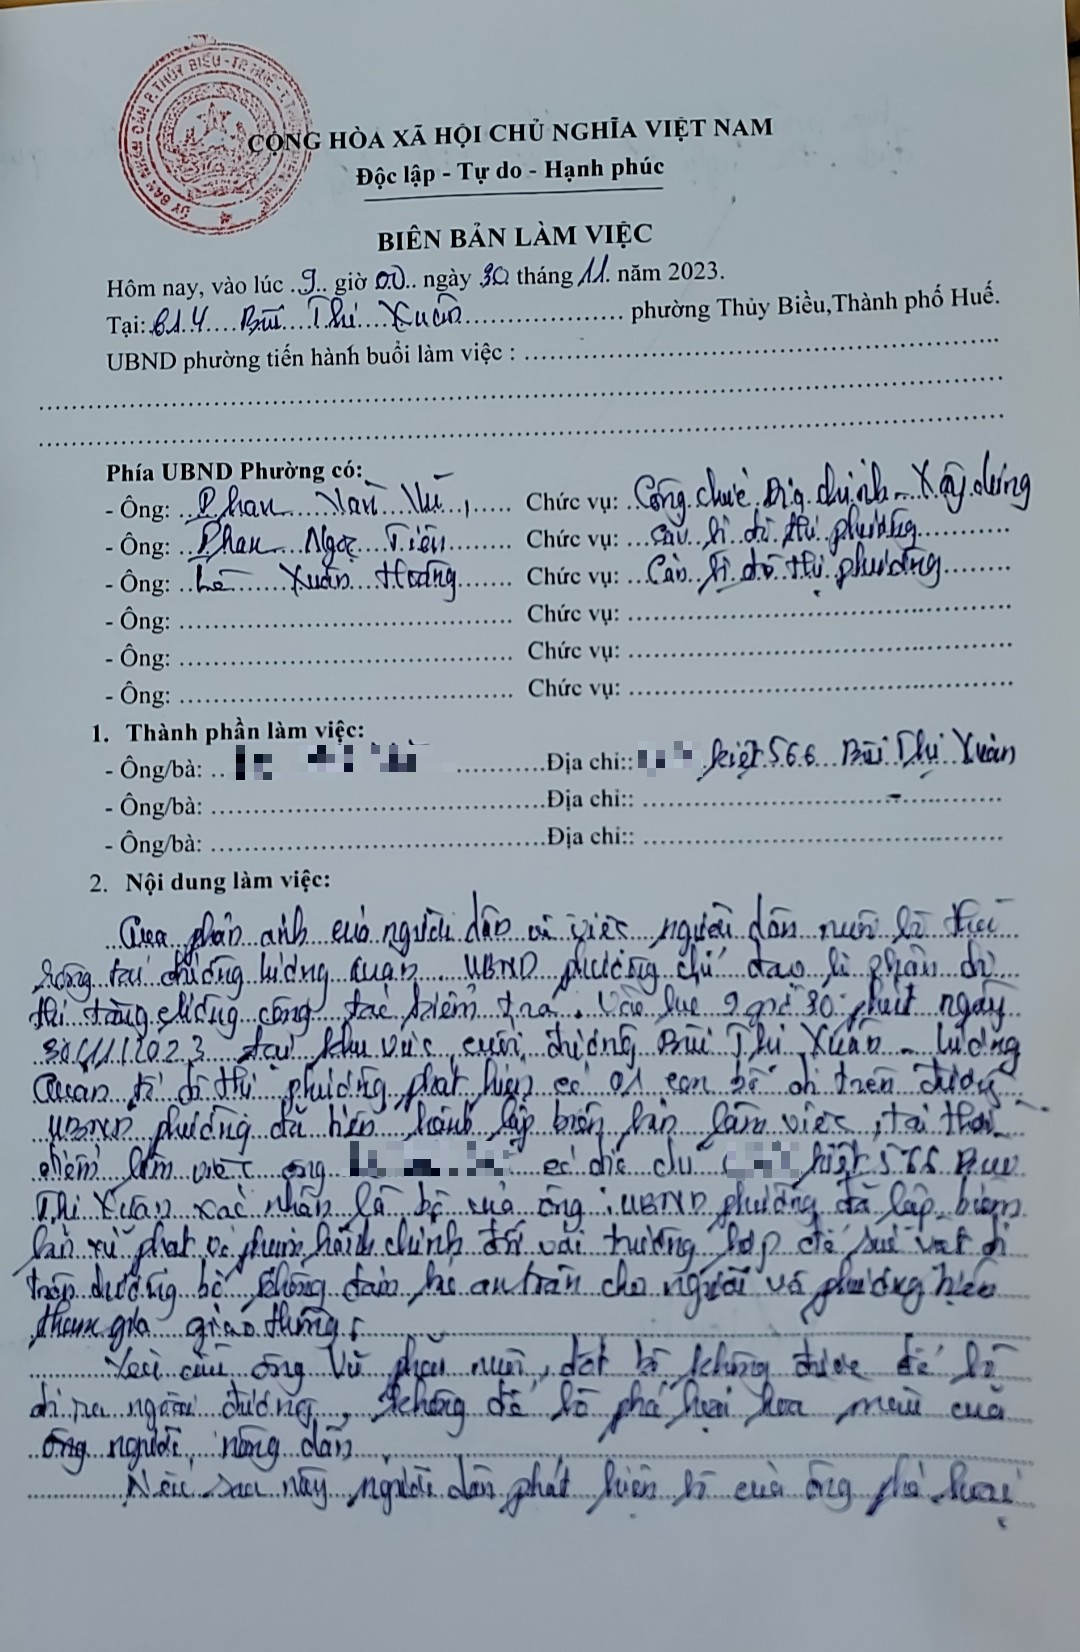 ỦY BAN NHÂN DÂN P. THỦY BIỀU - TP. HUẾ
CỘNG HÒA XÃ HỘI CHỦ NGHĨA VIỆT NAM
Độc lập - Tự do - Hạnh phúc
BIÊN BẢN LÀM VIỆC
Hôm nay, vào lúc 9 giờ 00 ngày 30 tháng 11 năm 2023.
Tại: Bùi Thị Xuân phường Thủy Biều,Thành phố Huế.
UBND phường tiến hành buổi làm việc :
Phía UBND Phường có:
- Ông: Phan Văn Vũ, Chức vụ: Công chức Địa chính - Xây dựng
- Ông: Phan Ngọc Tiến Chức vụ: đô thị phường
- Ông: Lê Xuân Hoàng Chức vụ: đô thị phường
- Ông: Chức vụ:
- Ông: Chức vụ:
- Ông: Chức vụ:
1. Thành phần làm việc:
- Ông/bà: Địa chỉ:: kiệt 566 Bùi Thị Xuân
- Ông/bà: Địa chỉ::
- Ông/bà: Địa chỉ::
2. Nội dung làm việc:
Qua phản ánh của người dân về việc người dân nuôi bò thả
rông tại đường Lương Quán UBND phường chỉ đạo
thị tăng cường công tác kiểm tra. Vào lúc 9 giờ 30 phút ngày
30/11/2023 tại khu vực cuối đường Bùi Thị Xuân - Lương
Quán đô thị phường phát hiện có 01 con bò đi trên đường
UBND phường đã tiến hành lập biên bản làm việc, tại thời
điểm làm việc ông có địa chỉ kiệt Bùi
Thị Xuân xác nhận là bò của ông. UBND phường đã lập biên
bản xử phạt vi phạm hành chính đối với trường hợp để súc vật đi
trên đường bộ không đảm bảo an toàn cho người và phương tiện
tham gia giao thông.
Yêu cầu ông Vũ phải nuôi, dắt bò không được để bò
đi ra ngoài đường, không để bò phá hại hoa màu của
ông người nông dân
Nếu sau này người dân phát hiện bò của ông phá hoại